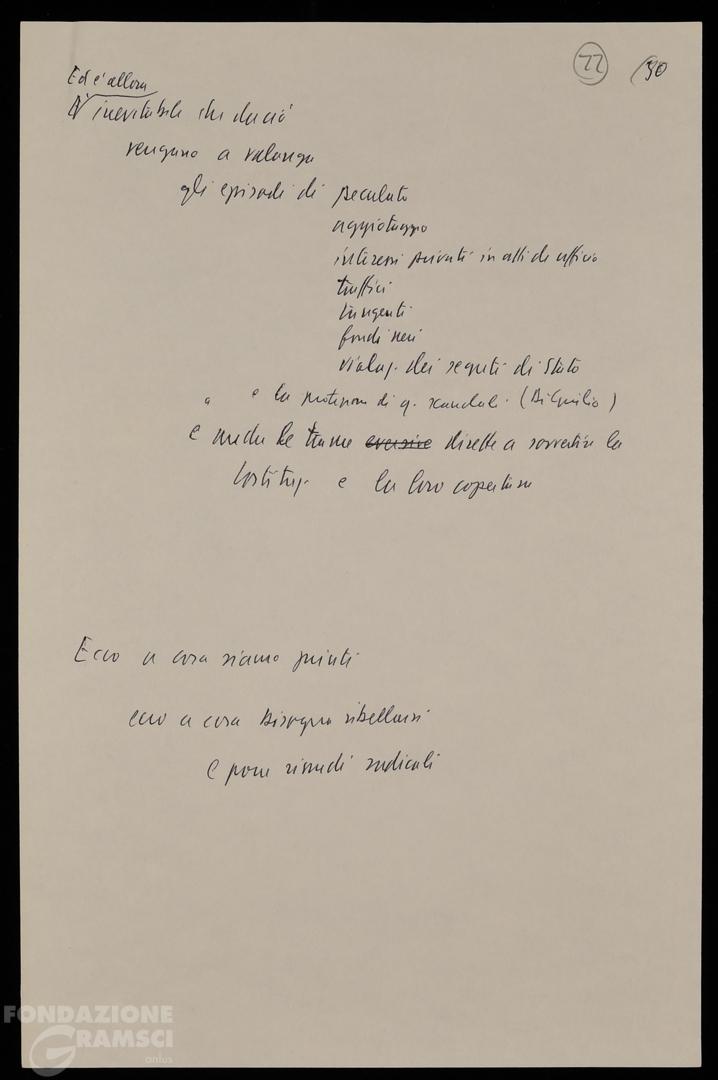 22 30
Ed è allora
È inevitabile che da ciò
vengano a valanga
gli episodi di peculato
aggiotaggio
interessi privati in atti di ufficio
truffici
tangenti
fondi neri
violaz. dei segreti di Stato
" e la protezione di q. scandali (Bi )
e anche le trame eversive dirette a sovvertire la
Costituz. e la loro copertura
Ecco a cosa siamo giunti
ecco a cosa bisogna ribellarsi
e porre rimedi radicali
FONDAZIONE
GRAMSCI
onlus